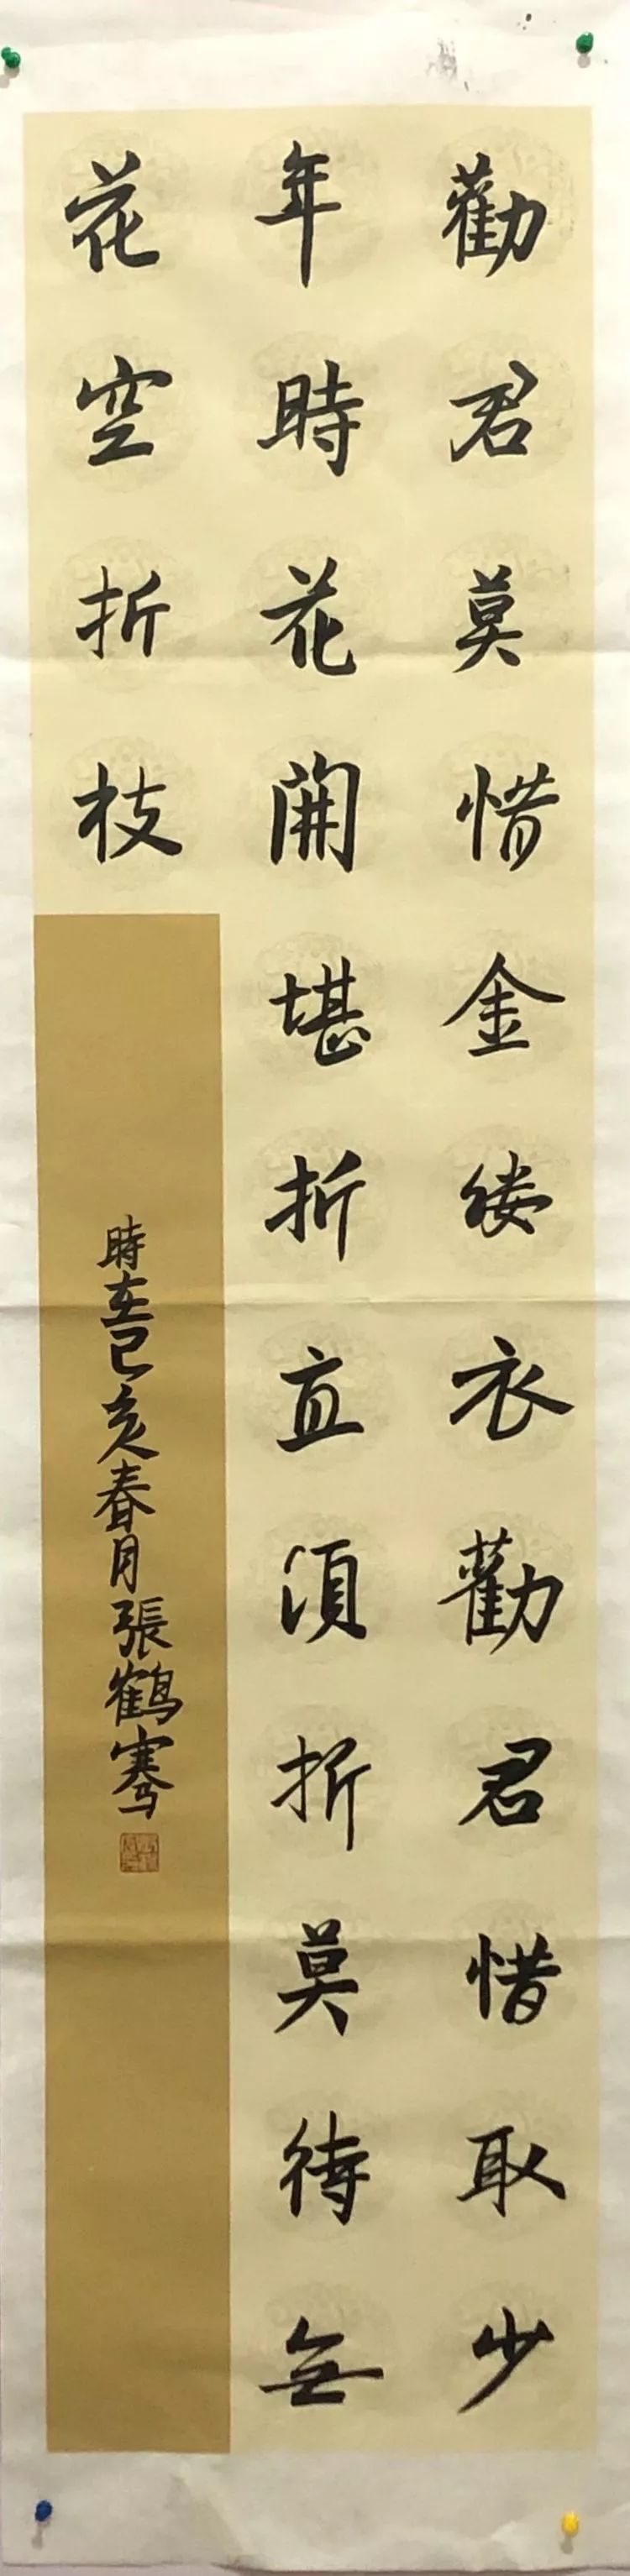 勸君莫惜金缕衣勸君惜取少
年時花開堪折直須折莫待無
花空折枝
時在己亥春月張鶴骞